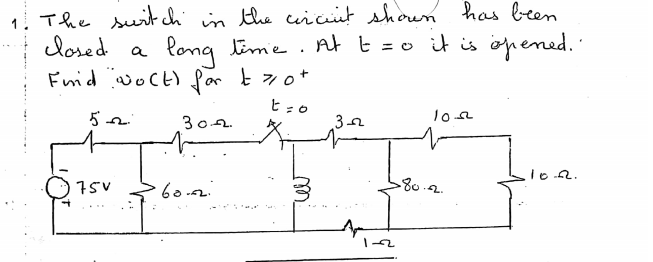 1. The switch in the circuit shown has been
closed a long time. At t = 0 it is opened.
Find vo(t) for t ≥ 0+
t = 0
5 Ω 30 Ω 3 Ω 10 Ω
- 75V + 60 Ω 80 Ω 10 Ω.
1 Ω